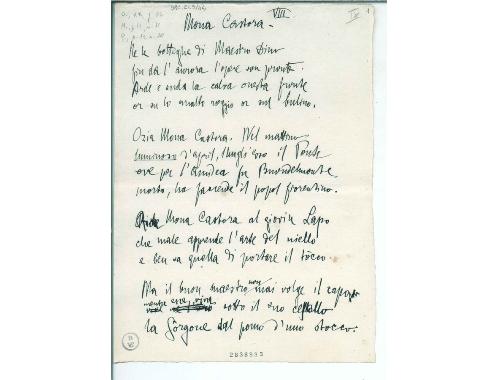 Mona Castora. VIII
Ne le botteghe di Maestro Dino
fin da l'aurora l'opere son pronte.
Arde e suda la calva onesta fronte
or su lo smalto roggio or sul bulino.
Ozia Mona Castora. Nel mattino
luminoso d'april, lungh'esso il Ponte
ove per l'Amidea fu Buondelmonte
morto, ha faccende il popol fiorentino.
Ride Mona Castora al giovin Lapo
che male apprende l'arte del niello
e ben sa quella di portare il tòcco.
Ma il buon maestro non mai volge il capo
mentre sotto il suo cesello
la Gòrgone dal pomo d'uno stocco.
2838935